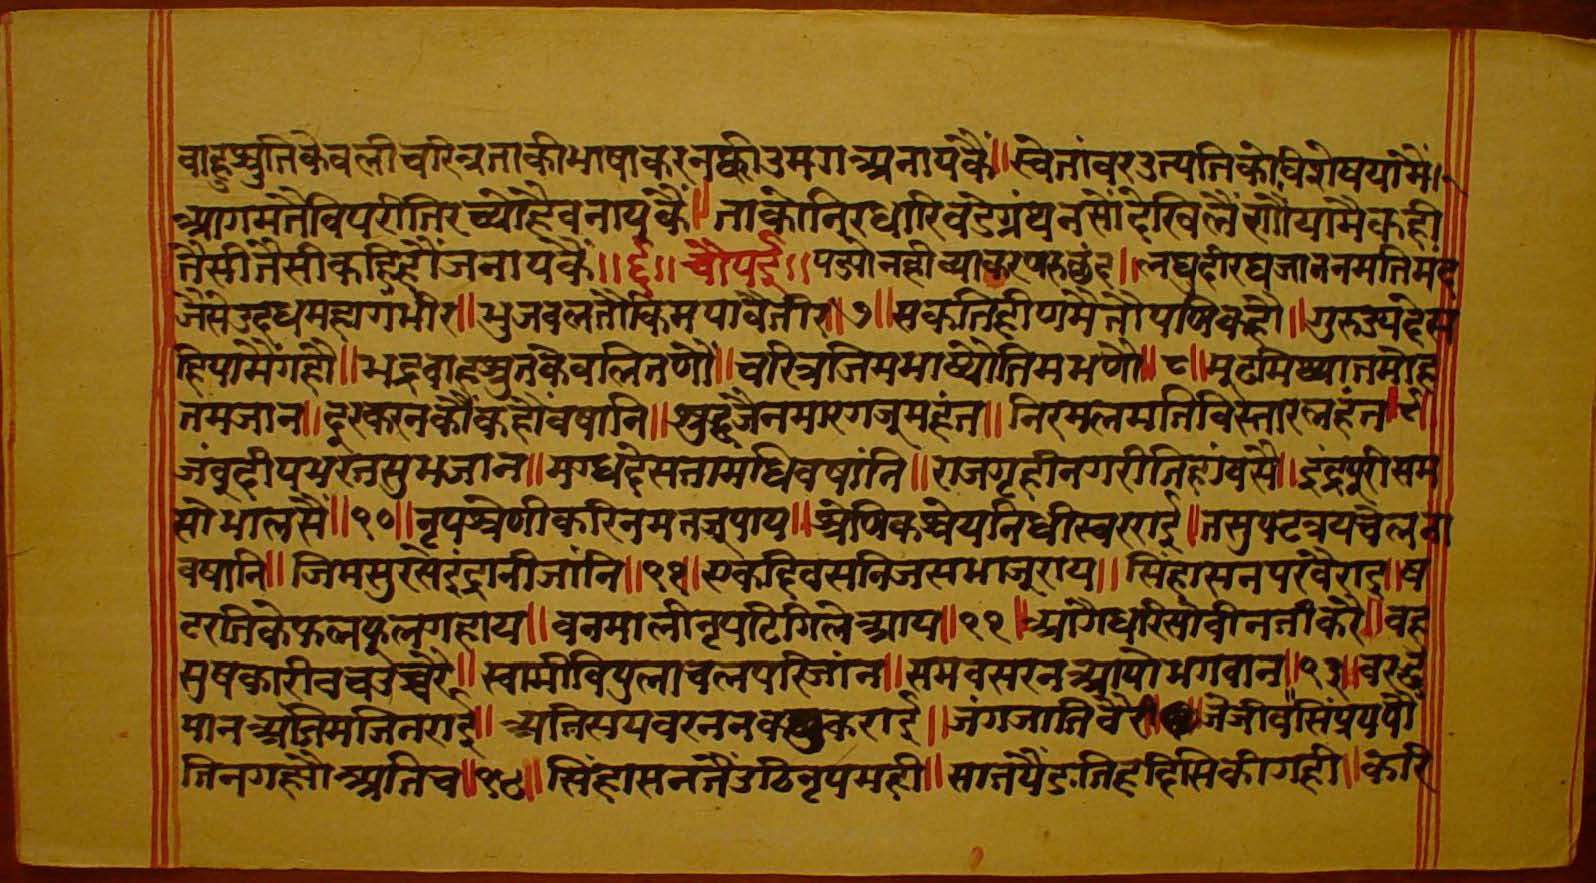 वाहुश्रुतिकेवलीचरित्रताकीभाषाकरनक्कीउमगअनायकैं॥स्वेतांवरउत्पत्तिकोविशेषयामैं।
आगमतैविपरीतिरच्यौहैवनायकैं॥ताकोनिरधारिवडेग्रंथनसौंदेखिलैंगौयामैकही
तैसीतैसीकहिहौंजनायकैं॥६॥चौपई॥पळ्यौनहीव्याकरण॥लघुदीरघजाननमतिमंद
जैसेउदधमहागंभीर॥भुजवलतौकिमपावैतीर॥७॥सकतिहीणमैतौपणिकहौ॥गुरुउपदेस
हियामैंगहौ॥भद्रवाहुश्रुतकेवलितणौ॥चरित्रजिमभाष्यौतिमभणौ॥८॥मूढमिथ्यातमोह
तमजान॥दूरकरनकौंकहौंवषानि॥शुद्धजैनमारगजुमहंत॥निरमलमतिविस्तारलहंत॥९॥
जंवूदीपभरतसुभजान॥मगधदेसतामधिवषांनि॥राजगृहीनगरीतिहांवसै॥इंद्रपुरीसम
सोभालसै॥१०॥नृपश्रेणीकरिनमतजुपाय॥श्रेणिकश्रेयनिधीस्वरराई॥तसुपटत्रयचेलना
वषानि॥जिमसुरसेइंद्रानीजांनि॥११॥एकदिवसनिजसभाजुराय॥सिंहासनपरवैराइ॥ष
टरितिकेफलफूलगहाय॥वनमालीनृपढिगिलेआय॥१२॥आगैधरिसोवीनतीकरै॥वहु
सुषकारीवचउच्चरै॥स्वामीविपुलाचलपरिजांन॥समवसरनआयोभगवान॥१३॥वरद्ध
मानअंतिमजिनराई॥अतिसयवरननकछुकराई॥जंगजातिवैरीजैजीव॥
तिनगह्यौअतिच॥१४॥सिंहासनतैंउठिनृपमही॥सातपैंडतिहदिसिकीगही॥करि